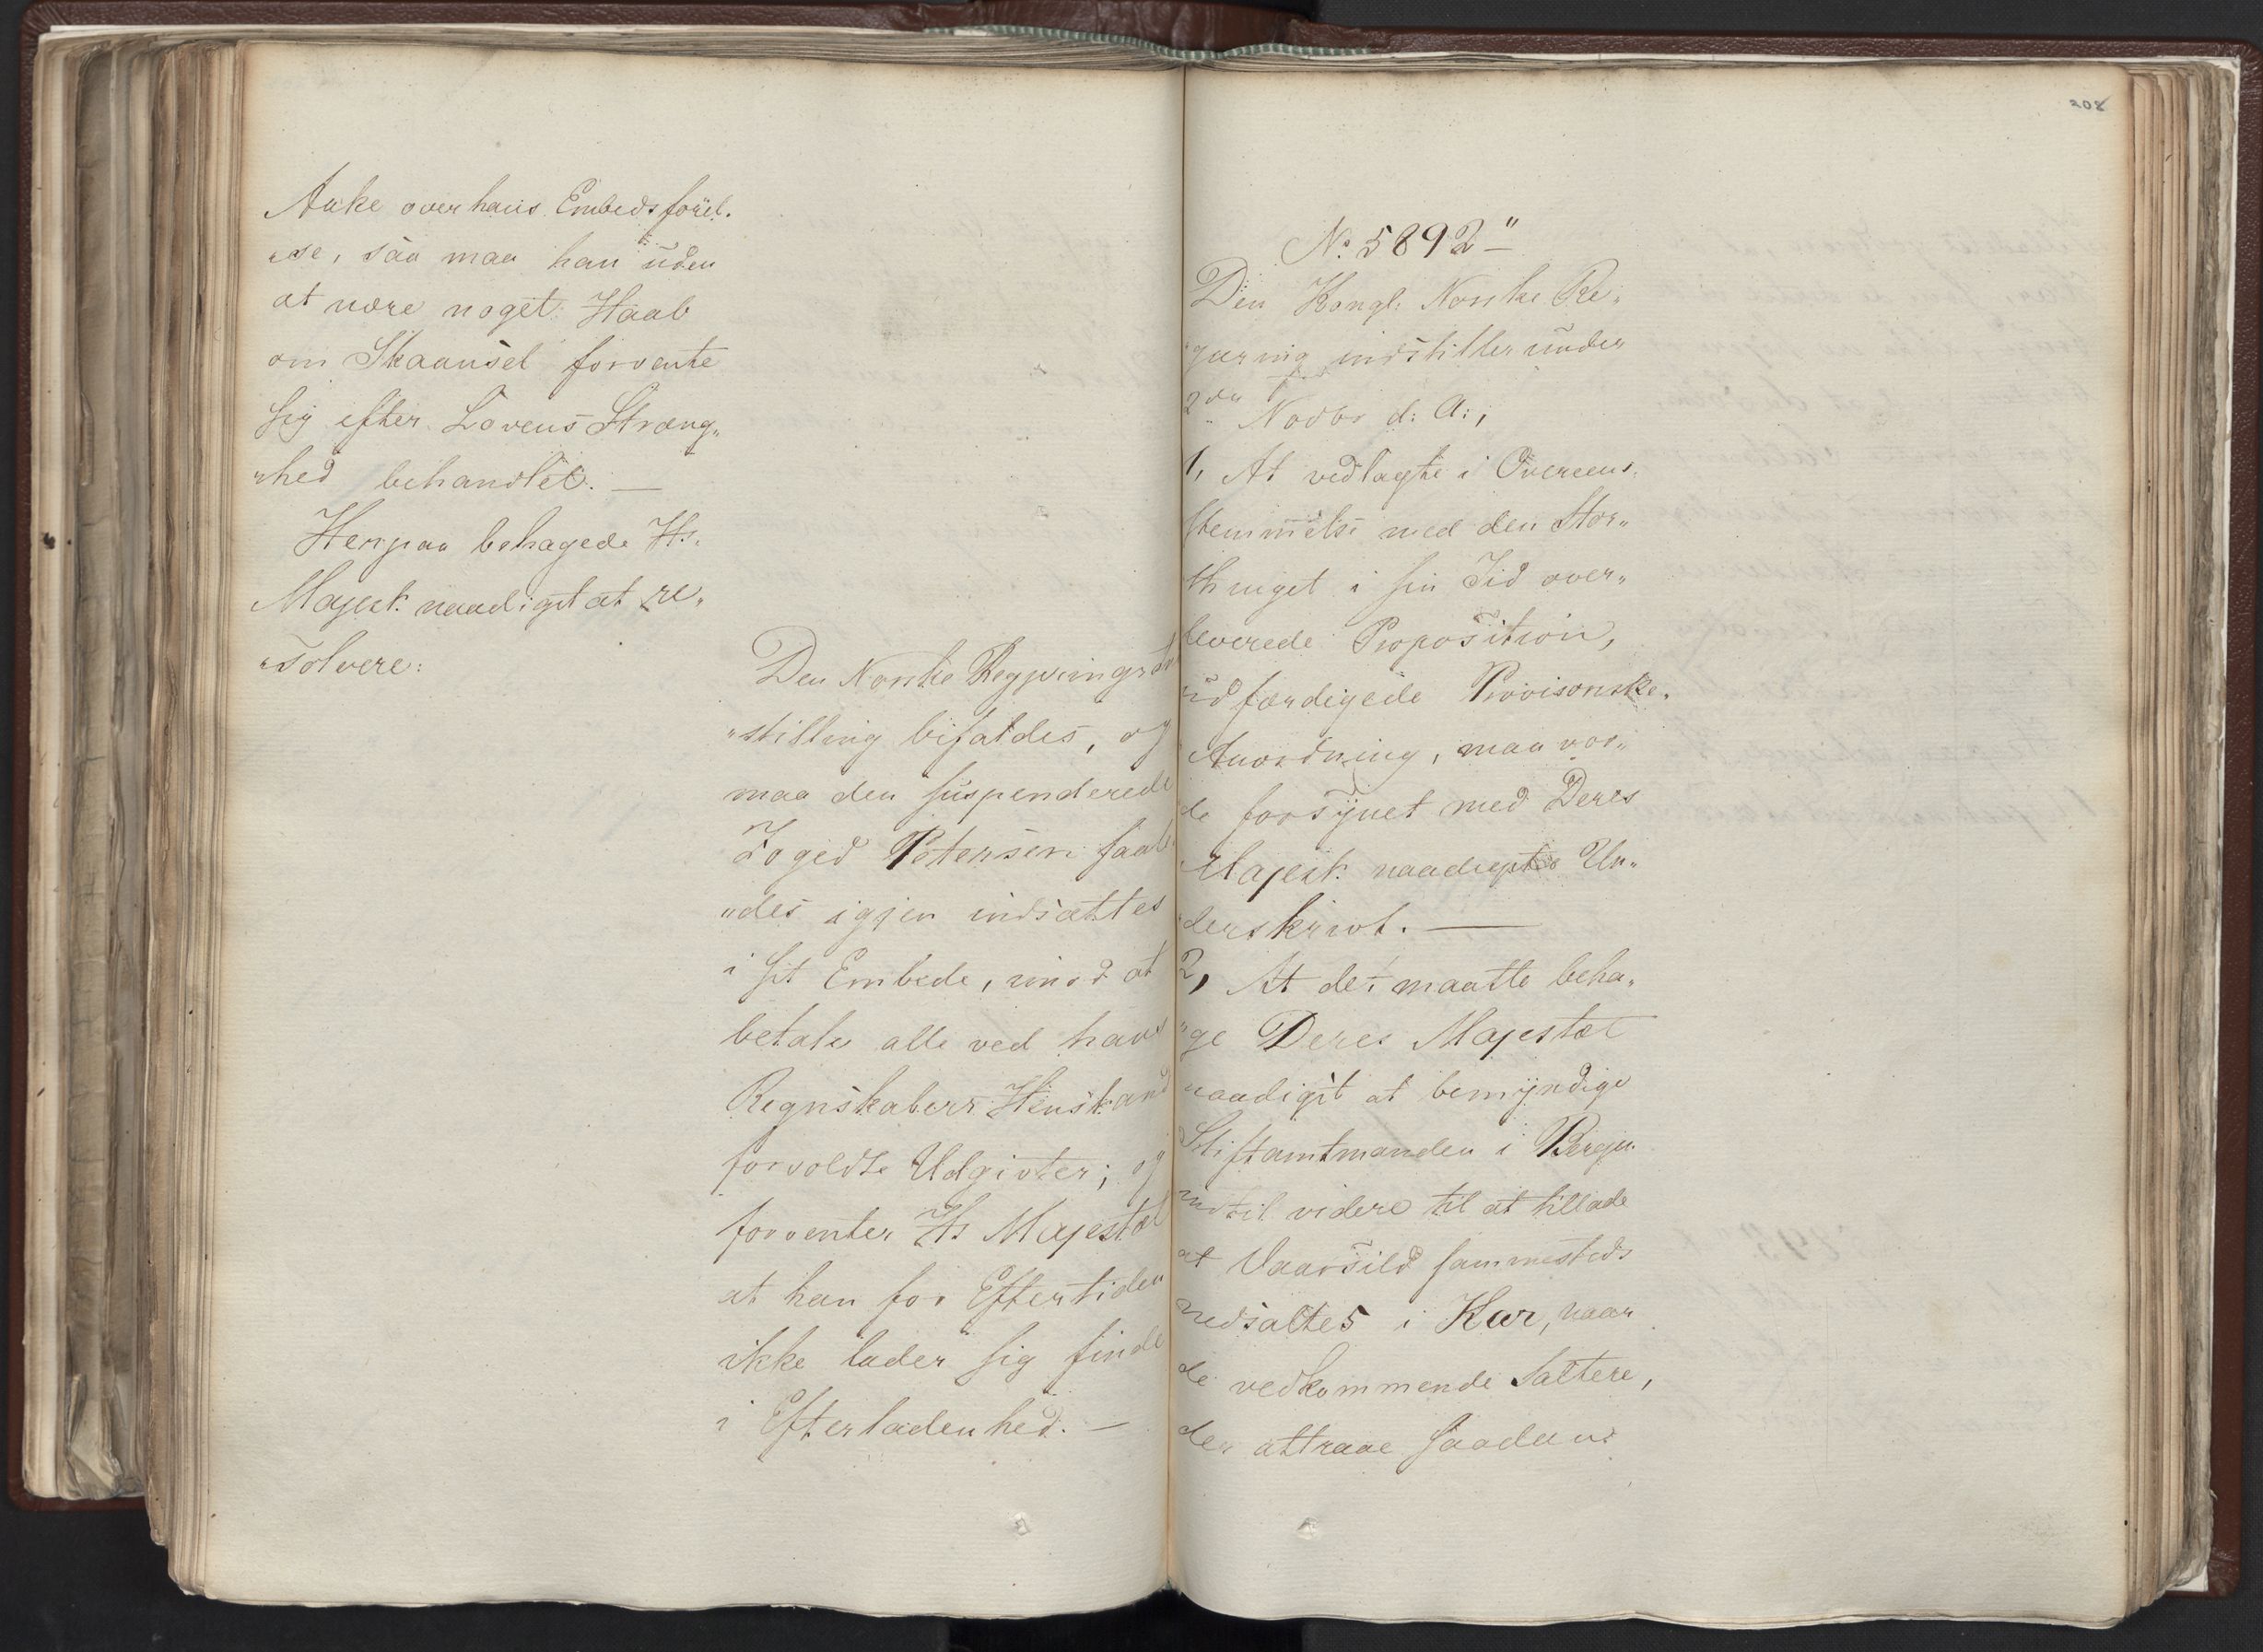 Anke over hans Embedsförel„
„se, saa maa han uden
at nære noget Haab
om Skaansel forvente
sig efter Lovens Stræng„
„hed behandlet. —
Herpaa behagede Hs.
Majest. naadigst at re„
„solvere:
Den Norske Regjerings
„stilling bifaldes, og
maa den suspenderede
Foged Petersen saal
„des igjen indsættes
i sit Embede, imod at
betale alle ved hans
Regnskabers Henstand
forvoldte Udgivter; og
forventer Hs Majestæt
at han for Eftertiden
ikke lader sig finde
i Efterladenhed. —
208
No 5892"
Den Kongl: Norske Re„
„gjering indstiller under
2den Novbr d: A:,
1, At vedlagte i Overeens„
stemmelse med den Stor„
thinget i sin Tid over„
leverede Proposition,
udfærdigede Provisoriske
Anordning, maa vor„
de forsynet med Deres
Majest. naadigste Un„
derskrivt. —
2, At det maatte beha„
„ge Deres Majestæt
naadigst at bemyndige
Stiftamtmanden i Bergen
indtil videre til at tillade
at Vaarsild sammesteds
nedsaltes i Kar, naar
de vedkommende Saltere,
der attraae saadans